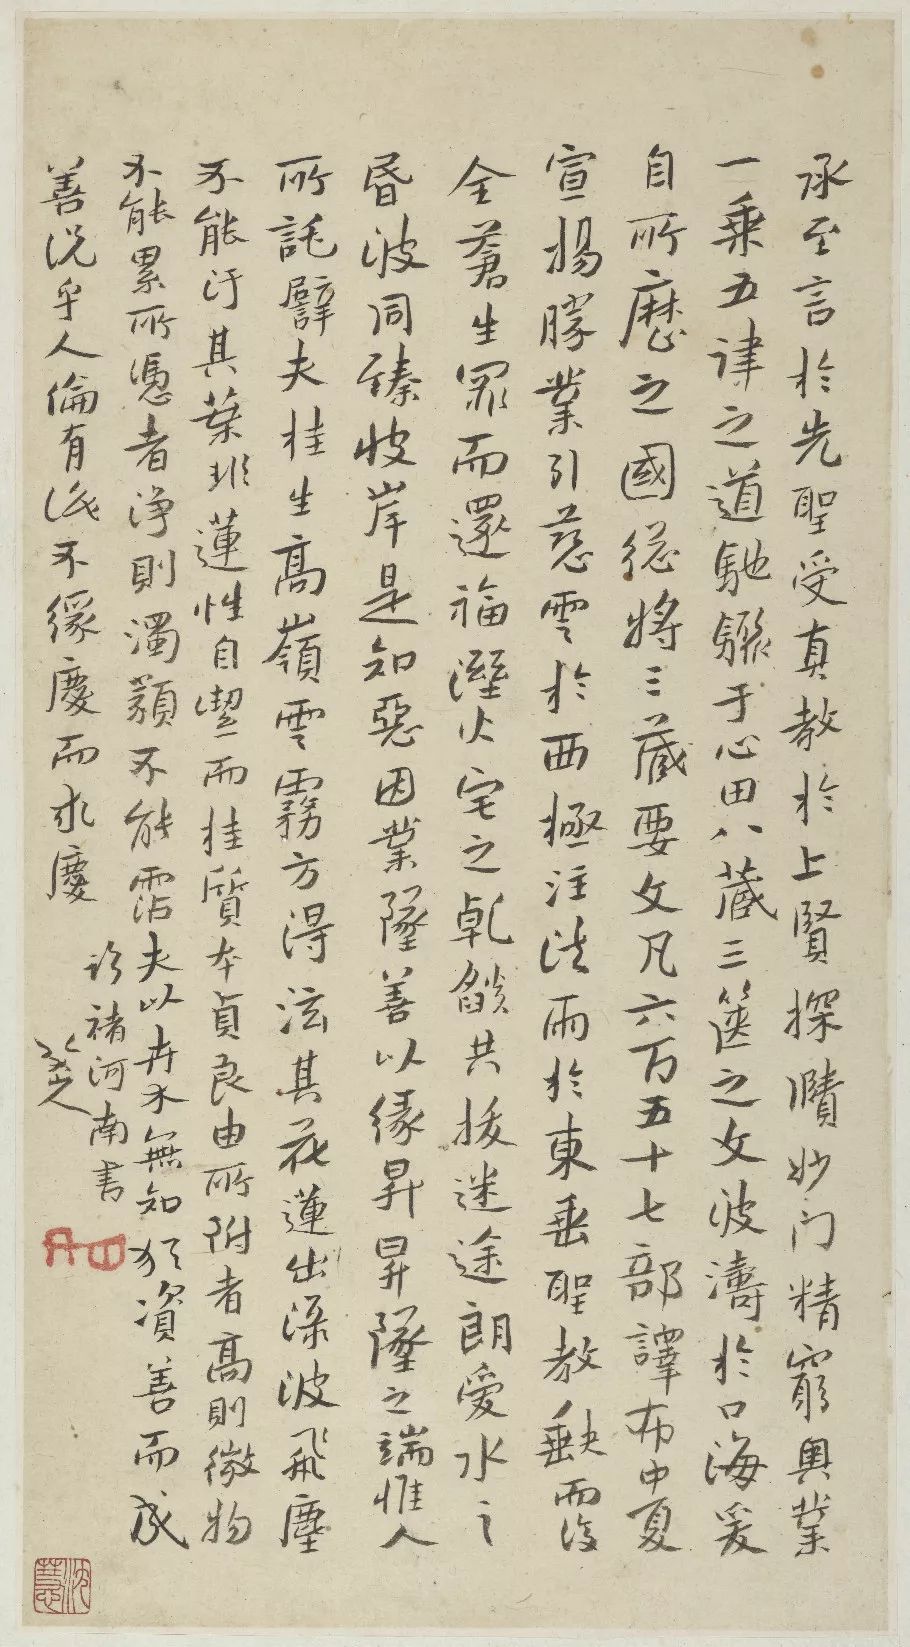 承至言於先聖受真教於上賢探賾妙门精窮奥業
一乗五律之道馳驟于心田八蔵三篋之文波濤於口海爰
自所歷之國総將三蔵要文凡六百五十七部譯布中夏
宣揚勝業引慈雲於西極注法雨於東垂聖教缺而復
全蒼生罪而還福溼火宅之乹燄共拔迷途朗愛水之
昏波同臻彼岸是知惡因業墜善以緣昇昇墜之端惟人
所託譬夫桂生高嶺雲霧方得泫其花蓮出渌波飛塵
不能汙其葉非蓮性自潔而桂質本貞良由所附者高則微物
不能累所憑者浄則濁類不能霑夫以卉木無知猶資善而成
善况乎人倫有識不緣慶而求慶
臨褚河南書
八大